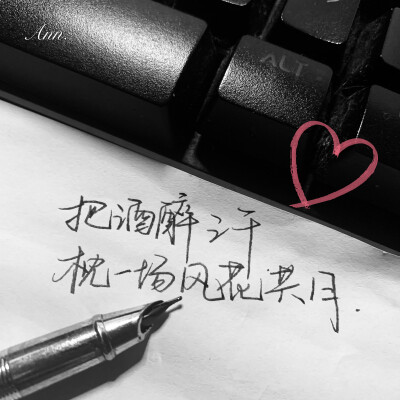 Ann.
ALT
把酒醉三千
枕一场风花共月.